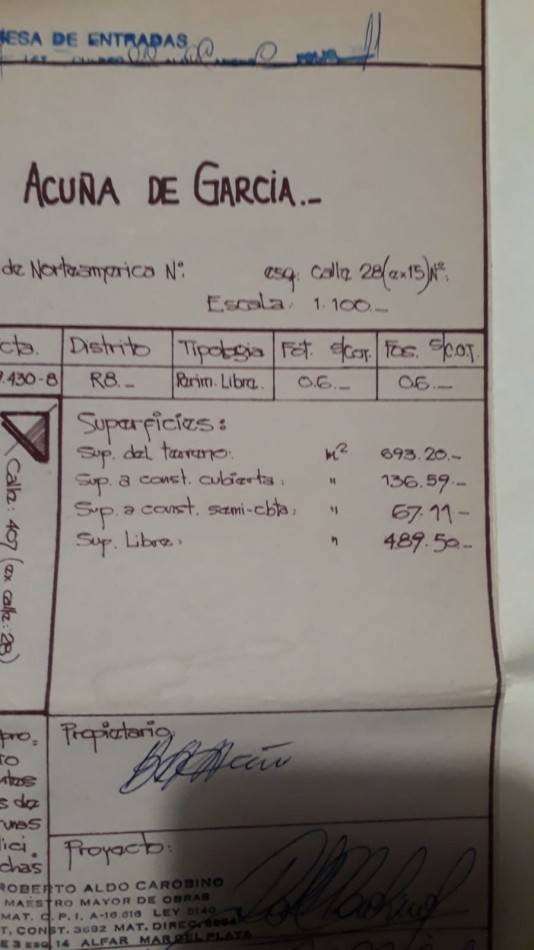 ESA DE ENTRADAS
ACUÑA DE GARCIA._
de Norteamerica Nº: esq. Calle 28(ex15)Nº:
Escala: 1.100._
cta. Distrito Tipologia Fot. s/cot. Fos. s/C.O.T.
.430-8 R8._ Perim. Libre. 0.6._ 0.6._
Superficies:
Sup. del terreno: m² 693.20.-
Sup. a const. cubierta: " 136.59.-
Sup. a const. semi-cbta: " 67.11-
Sup. Libre: " 489.50._
Calle: 407 (ex calle: 28)
pro=
to
s de
ici.
chas
Propietario
Proyecto:
ROBERTO ALDO CAROBINO
MAESTRO MAYOR DE OBRAS
MAT. C.P.I. A-16.016 LEY 5140
T. CONST. 3682 MAT. DIREC.
E 3 ESQ. 14 ALFAR MAR DEL PLATA